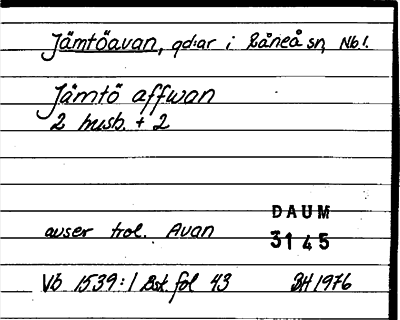 Jämtöavan, gd:ar i Råneå sn, Nb!.
Jämtö affwan
2 husb. + 2
DAUM
avser trol. Avan
3145
Vb 1539:1 Bst. fol 43 BH 1976